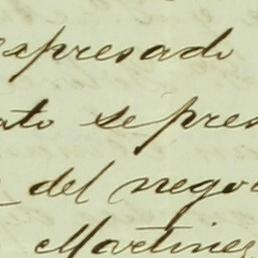 expresado
ato se pres
del nego
Martinez